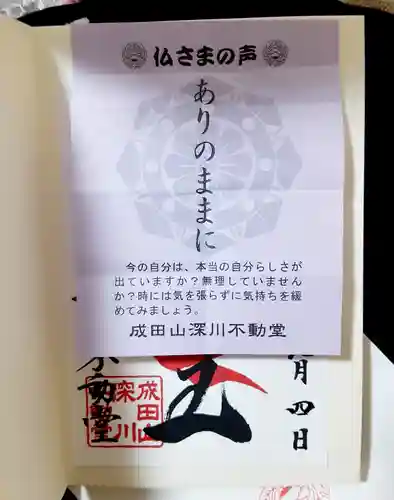 仏さまの声
ありのままに
今の自分は、本当の自分らしさが
出ていますか？無理していません
か？時には気を張らずに気持ちを緩
めてみましょう。
成田山深川不動堂
月四日
成田山
深川